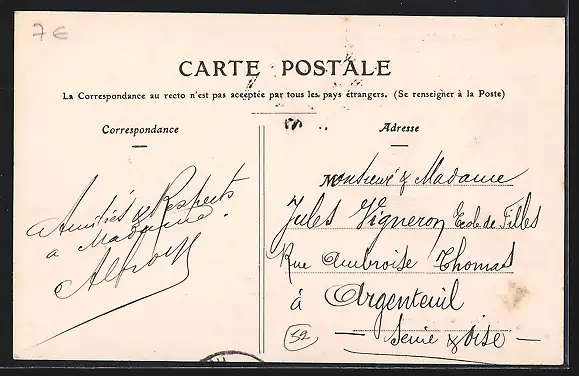 7 €
CARTE POSTALE
La Correspondance au recto n'est pas acceptée par tous les pays étrangers. (Se renseigner à la Poste)
Correspondance
Adresse
Amitiés & Respects
a Madame.
Monsieur & Madame
Jules Vigneron Ecole de Filles
Rue Ambroise Thomas
à Argenteuil
Seine & Oise
52